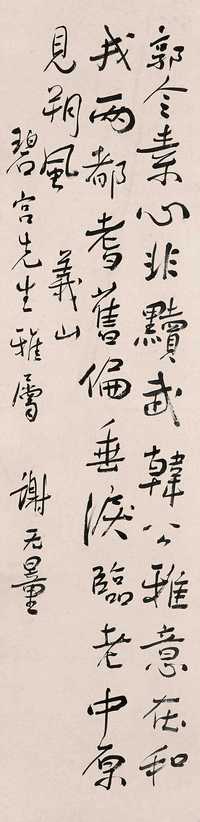 郭令素心非黷武韓公雅意在和
戎兩都耆舊偏垂淚臨老中原
見朔風 義山
碧宮先生雅屬 謝无量